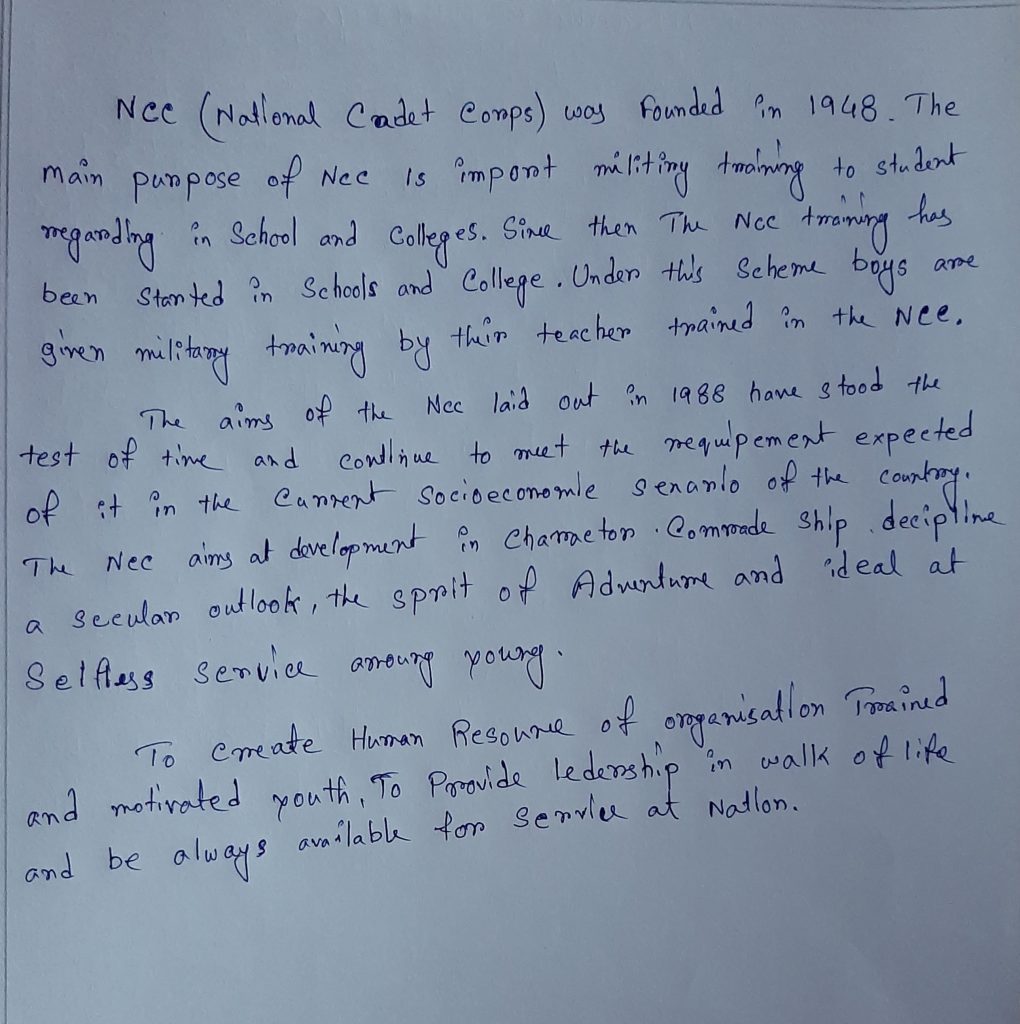 NCC (National Cadet Corps) was founded in 1948. The
main purpose of NCC is import militiry training to student
regarding in School and Colleges. Since then The NCC training has
been Started in Schools and College. Under this Scheme boys are
given military training by their teacher trained in the NCC.
The aims of the NCC laid out in 1988 have stood the
test of time and continue to meet the requipement expected
of it in the Current Socioeconomic senario of the country.
The NCC aims at development in Character. Comrade Ship. decipline
a Secular outlook, the sprit of Adventure and ideal at
Selfless Service amoung young.
To Create Human Resource of organisation Trained
and motivated youth, To Provide ledership in walk of life
and be always available for Service at Nation.